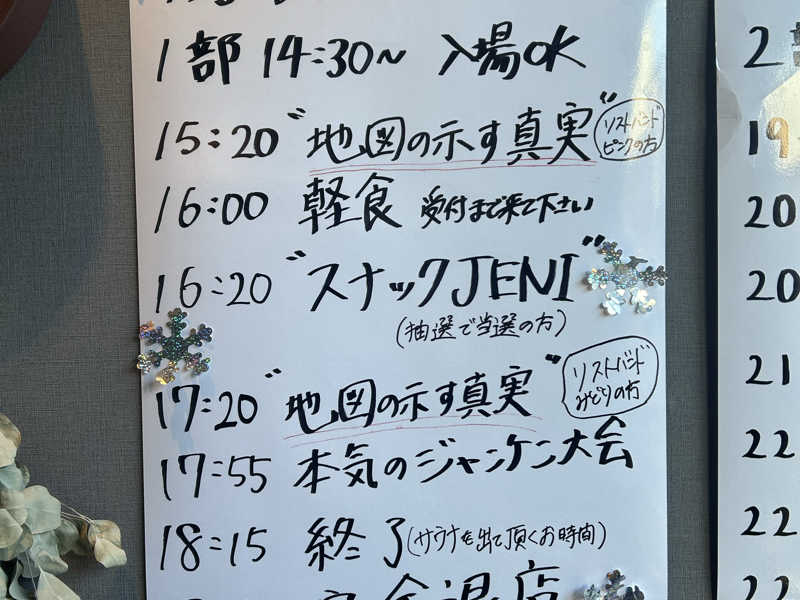 1部 14:30〜 入場OK
15:20 "地図の示す真実" リストバンド ピンクの方
16:00 軽食 受付まで来て下さい
16:20 "スナックJENI"
(抽選で当選の方)
17:20 "地図の示す真実" リストバンド みどりの方
17:55 本気のジャンケン大会
18:15 終了(サウナを出て頂くお時間)
2
19
20
20
21
22
22
22